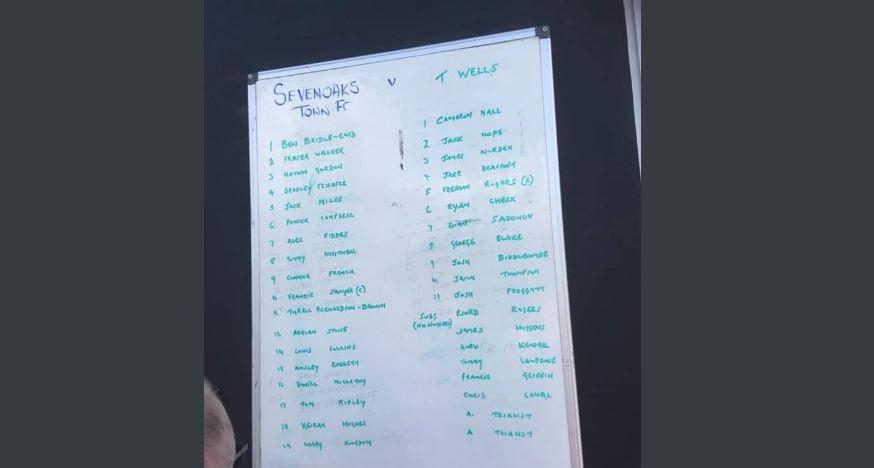 SEVENOAKS TOWN FC v T WELLS
1 BEN BRIDLE-CARD
2 FRASER WALKER
3 NATHAN GORDON
4 BRADLEY SCHAFER
5 JACK MILES
6 PATRICK CAMPBELL
7 ALEX FIDDES
8 TOMMY WHITNELL
9 CONNOR FRENCH
10 FRANKIE SAWYER (C)
11 TYRELL RICHARDSON-BROWN
12 ADRIAN STONE
14 LOUIS COLLINS
15 AINSLEY EVERETT
16 DANIEL McCARTHY
17 TOM RIPLEY
18 KEIRAN HUGHES
19 HARRY KINGDOM
1 CAMERON HALL
2 JACK HOPE
3 JAMES NURDEN
4 JAKE BEAUMONT
5 ROGERS (C)
6 RYAN CHEEK
7 SADOHON
8 GEORGE BLAKE
9 JOSH BIDDLECOMBE
10 JASON THOMPSON
11 JOSH
SUBS (NO NUMBERS) FJORD ROGERS
JAMES
KENDAL
TOMMY LAWRENCE
FRANCIS GRIFFIN
CHRIS LAWAL
A. TRIALIST
A TRIALIST